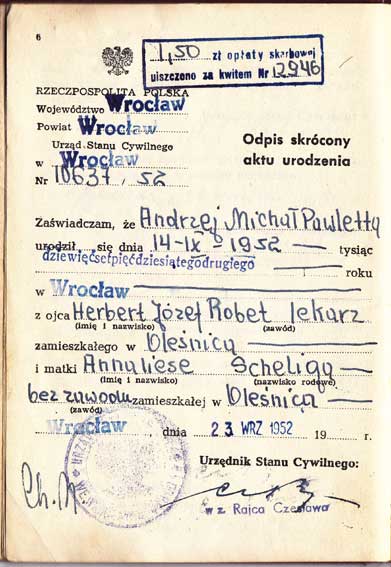 6
1,50 zł opłaty skarbowej
uiszczono za kwitem Nr 12946
RZECZPOSPOLITA POLSKA
Województwo Wrocław
Powiat Wrocław
Urząd Stanu Cywilnego
w Wrocław
Nr 10637/52
Odpis skrócony
aktu urodzenia
Zaświadczam, że Andrzej Michał Pawletta
urodził się dnia 14-IX-1952 — tysiąc
dziewięćsetpięćdziesiątegodrugiego
roku
w Wrocław
z ojca Herbert Józef Robet lekarz
(imię i nazwisko) (zawód)
zamieszkałego w Oleśnicy
i matki Annaliese Scheliga
(imię i nazwisko) (nazwisko rodowe)
bez zawodu zamieszkałej w Oleśnica
(zawód)
Wrocław, dnia 23 WRZ 1952 19 — r.
Urzędnik Stanu Cywilnego:
w z Rajca Czesława